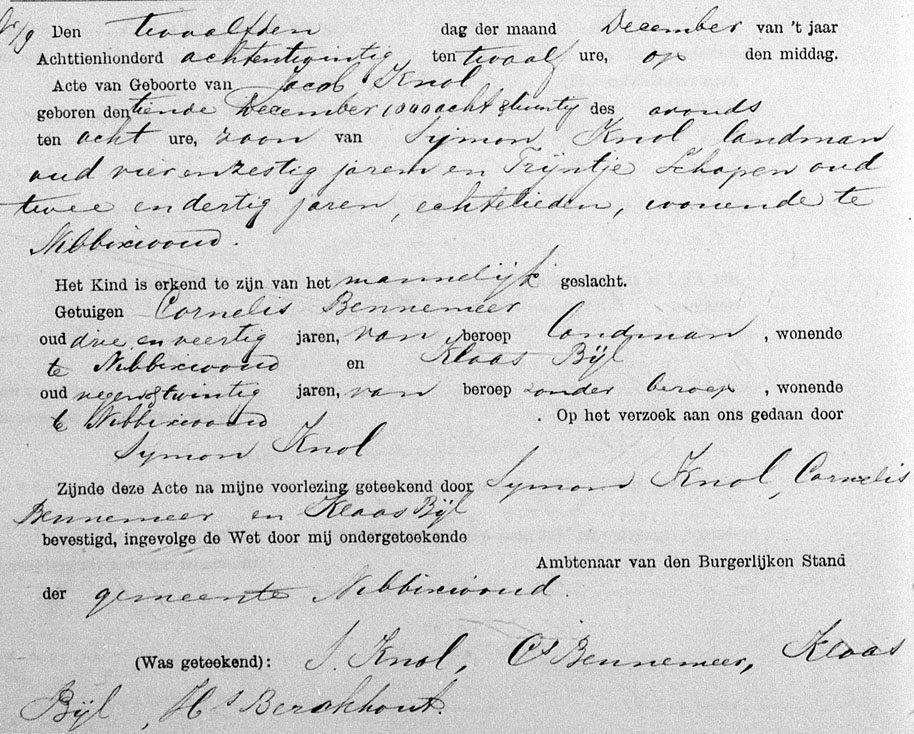 No 19 Den twaalfden dag der maand December van 't jaar
Achttienhonderd achtentwintig ten twaalf ure, op den middag.
Acte van Geboorte van Jacob Knol
geboren den tiende December 1800 acht & twintig des avonds
ten acht ure, zoon van Sijmon Knol landman
oud vier en zestig jaren en Trijntje Schapen oud
twee en dertig jaren, echtelieden, wonende te
Nibbixwoud.
Het Kind is erkend te zijn van het mannelijk geslacht.
Getuigen Cornelis Bennemeer
oud drie en veertig jaren, van beroep landman, wonende
te Nibbixwoud en Klaas Bijl
oud negen & twintig jaren, van beroep zonder beroep, wonende
te Nibbixwoud. Op het verzoek aan ons gedaan door
Sijmon Knol
Zijnde deze Acte na mijne voorlezing geteekend door Sijmon Knol, Cornelis
Bennemeer en Klaas Bijl
bevestigd, ingevolge de Wet door mij ondergeteekende
Ambtenaar van den Burgerlijken Stand
der gemeente Nibbixwoud.
(Was geteekend): S. Knol, Cs Bennemeer, Klaas
Bijl, Hs Berckhout.